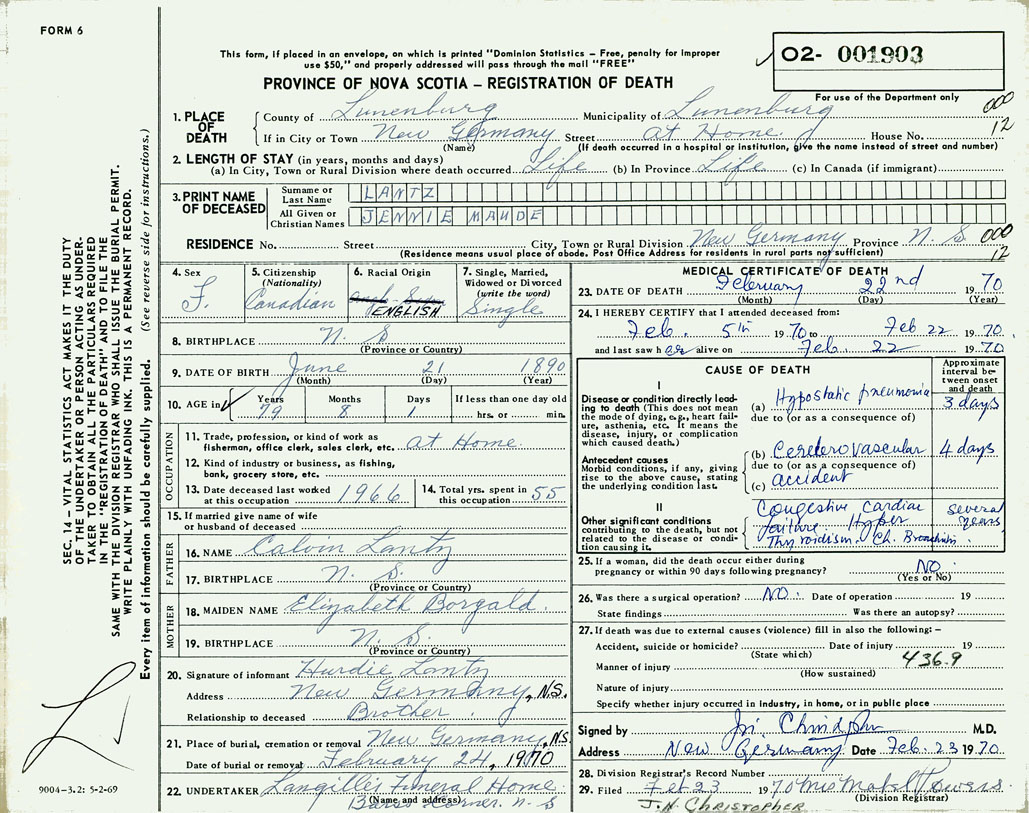 FORM 6
This form, if placed in an envelope, on which is printed "Dominion Statistics – Free, penalty for improper
use $50," and properly addressed will pass through the mail "FREE"
O2- 001903
PROVINCE OF NOVA SCOTIA – REGISTRATION OF DEATH
For use of the Department only
1. PLACE OF DEATH
County of Lunenburg Municipality of Lunenburg 000
If in City or Town New Germany Street at Home. House No. 12
(Name) (If death occurred in a hospital or institution, give the name instead of street and number)
2. LENGTH OF STAY (in years, months and days)
(a) In City, Town or Rural Division where death occurred Life (b) In Province Life (c) In Canada (if immigrant)
3. PRINT NAME OF DECEASED
Surname or Last Name LANTZ
All Given or Christian Names JENNIE MAUDE
RESIDENCE No. Street City, Town or Rural Division New Germany Province N. S 000
(Residence means usual place of abode. Post Office Address for residents in rural parts not sufficient) 12
4. Sex F.
5. Citizenship (Nationality) Canadian
6. Racial Origin ENGLISH
7. Single, Married, Widowed or Divorced (write the word) Single
8. BIRTHPLACE N. S
(Province or Country)
9. DATE OF BIRTH June 21 1890
(Month) (Day) (Year)
10. AGE in Years 79 Months 8 Days 1 If less than one day old hrs. or min.
OCCUPATION
11. Trade, profession, or kind of work as fisherman, office clerk, sales clerk, etc. at Home.
12. Kind of industry or business, as fishing, bank, grocery store, etc.
13. Date deceased last worked at this occupation 1966
14. Total yrs. spent in this occupation 55
15. If married give name of wife or husband of deceased
FATHER
16. NAME Calvin Lantz
17. BIRTHPLACE N. S.
(Province or Country)
MOTHER
18. MAIDEN NAME Elizabeth Borgald.
19. BIRTHPLACE N. S.
(Province or Country)
20. Signature of informant Hurdie Lantz
Address New Germany, N.S.
Relationship to deceased Brother.
21. Place of burial, cremation or removal New Germany, N.S.
Date of burial or removal February 24, 1970
22. UNDERTAKER Langille's Funeral Home
(Name and address) Barss Corner. N. S
MEDICAL CERTIFICATE OF DEATH
23. DATE OF DEATH February 22nd 1970
(Month) (Day) (Year)
24. I HEREBY CERTIFY that I attended deceased from:
Feb. 5th 1970 to Feb 22 1970
and last saw her alive on Feb. 22 1970
CAUSE OF DEATH
Approximate interval between onset and death
I
Disease or condition directly leading to death (This does not mean the mode of dying, e.g., heart failure, asthenia, etc. It means the disease, injury, or complication which caused death.)
(a) Hypostatic pneumonia 3 days
due to (or as a consequence of)
Antecedent causes
Morbid conditions, if any, giving rise to the above cause, stating the underlying condition last.
(b) Cerebrovascular 4 days
due to (or as a consequence of)
(c) accident
II
Other significant conditions contributing to the death, but not related to the disease or condition causing it.
Congestive Cardiac several
failure. Hyper years
Thyroidism. Ch. Bronchitis.
25. If a woman, did the death occur either during pregnancy or within 90 days following pregnancy? NO
(Yes or No)
26. Was there a surgical operation? NO. Date of operation 19
State findings Was there an autopsy?
27. If death was due to external causes (violence) fill in also the following: –
Accident, suicide or homicide? Date of injury 19
(State which) 436.9
Manner of injury
(How sustained)
Nature of injury
Specify whether injury occurred in industry, in home, or in public place
Signed by Jn. Christopher M.D.
Address New Germany Date Feb. 23 1970
28. Division Registrar's Record Number
29. Filed Feb 23 1970 Mrs Mabel Powers
(Division Registrar)
J. N. CHRISTOPHER
SEC. 14 – VITAL STATISTICS ACT MAKES IT THE DUTY
OF THE UNDERTAKER OR PERSON ACTING AS UNDER-
TAKER TO OBTAIN ALL THE PARTICULARS REQUIRED
IN THE "REGISTRATION OF DEATH" AND TO FILE THE
SAME WITH THE DIVISION REGISTRAR WHO SHALL ISSUE THE BURIAL PERMIT.
WRITE PLAINLY WITH UNFADING INK. THIS IS A PERMANENT RECORD.
Every item of information should be carefully supplied. (See reverse side for instructions.)
9004-3.2: 5-2-69